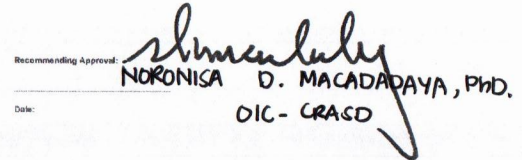 Recommending Approval:
NORONISA D. MACADADAYA, PhD.
Date:
OIC - CRASD